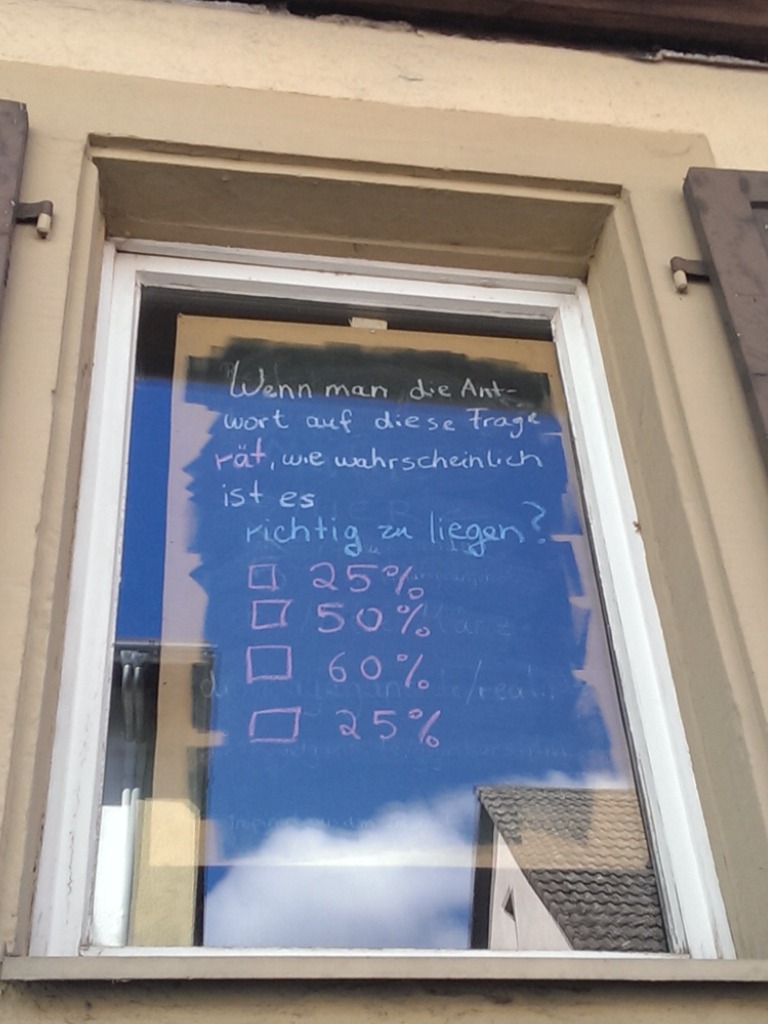 Wenn man die Ant-
wort auf diese Frage
rät, wie wahrscheinlich
ist es
richtig zu liegen?
25%
50%
60%
25%